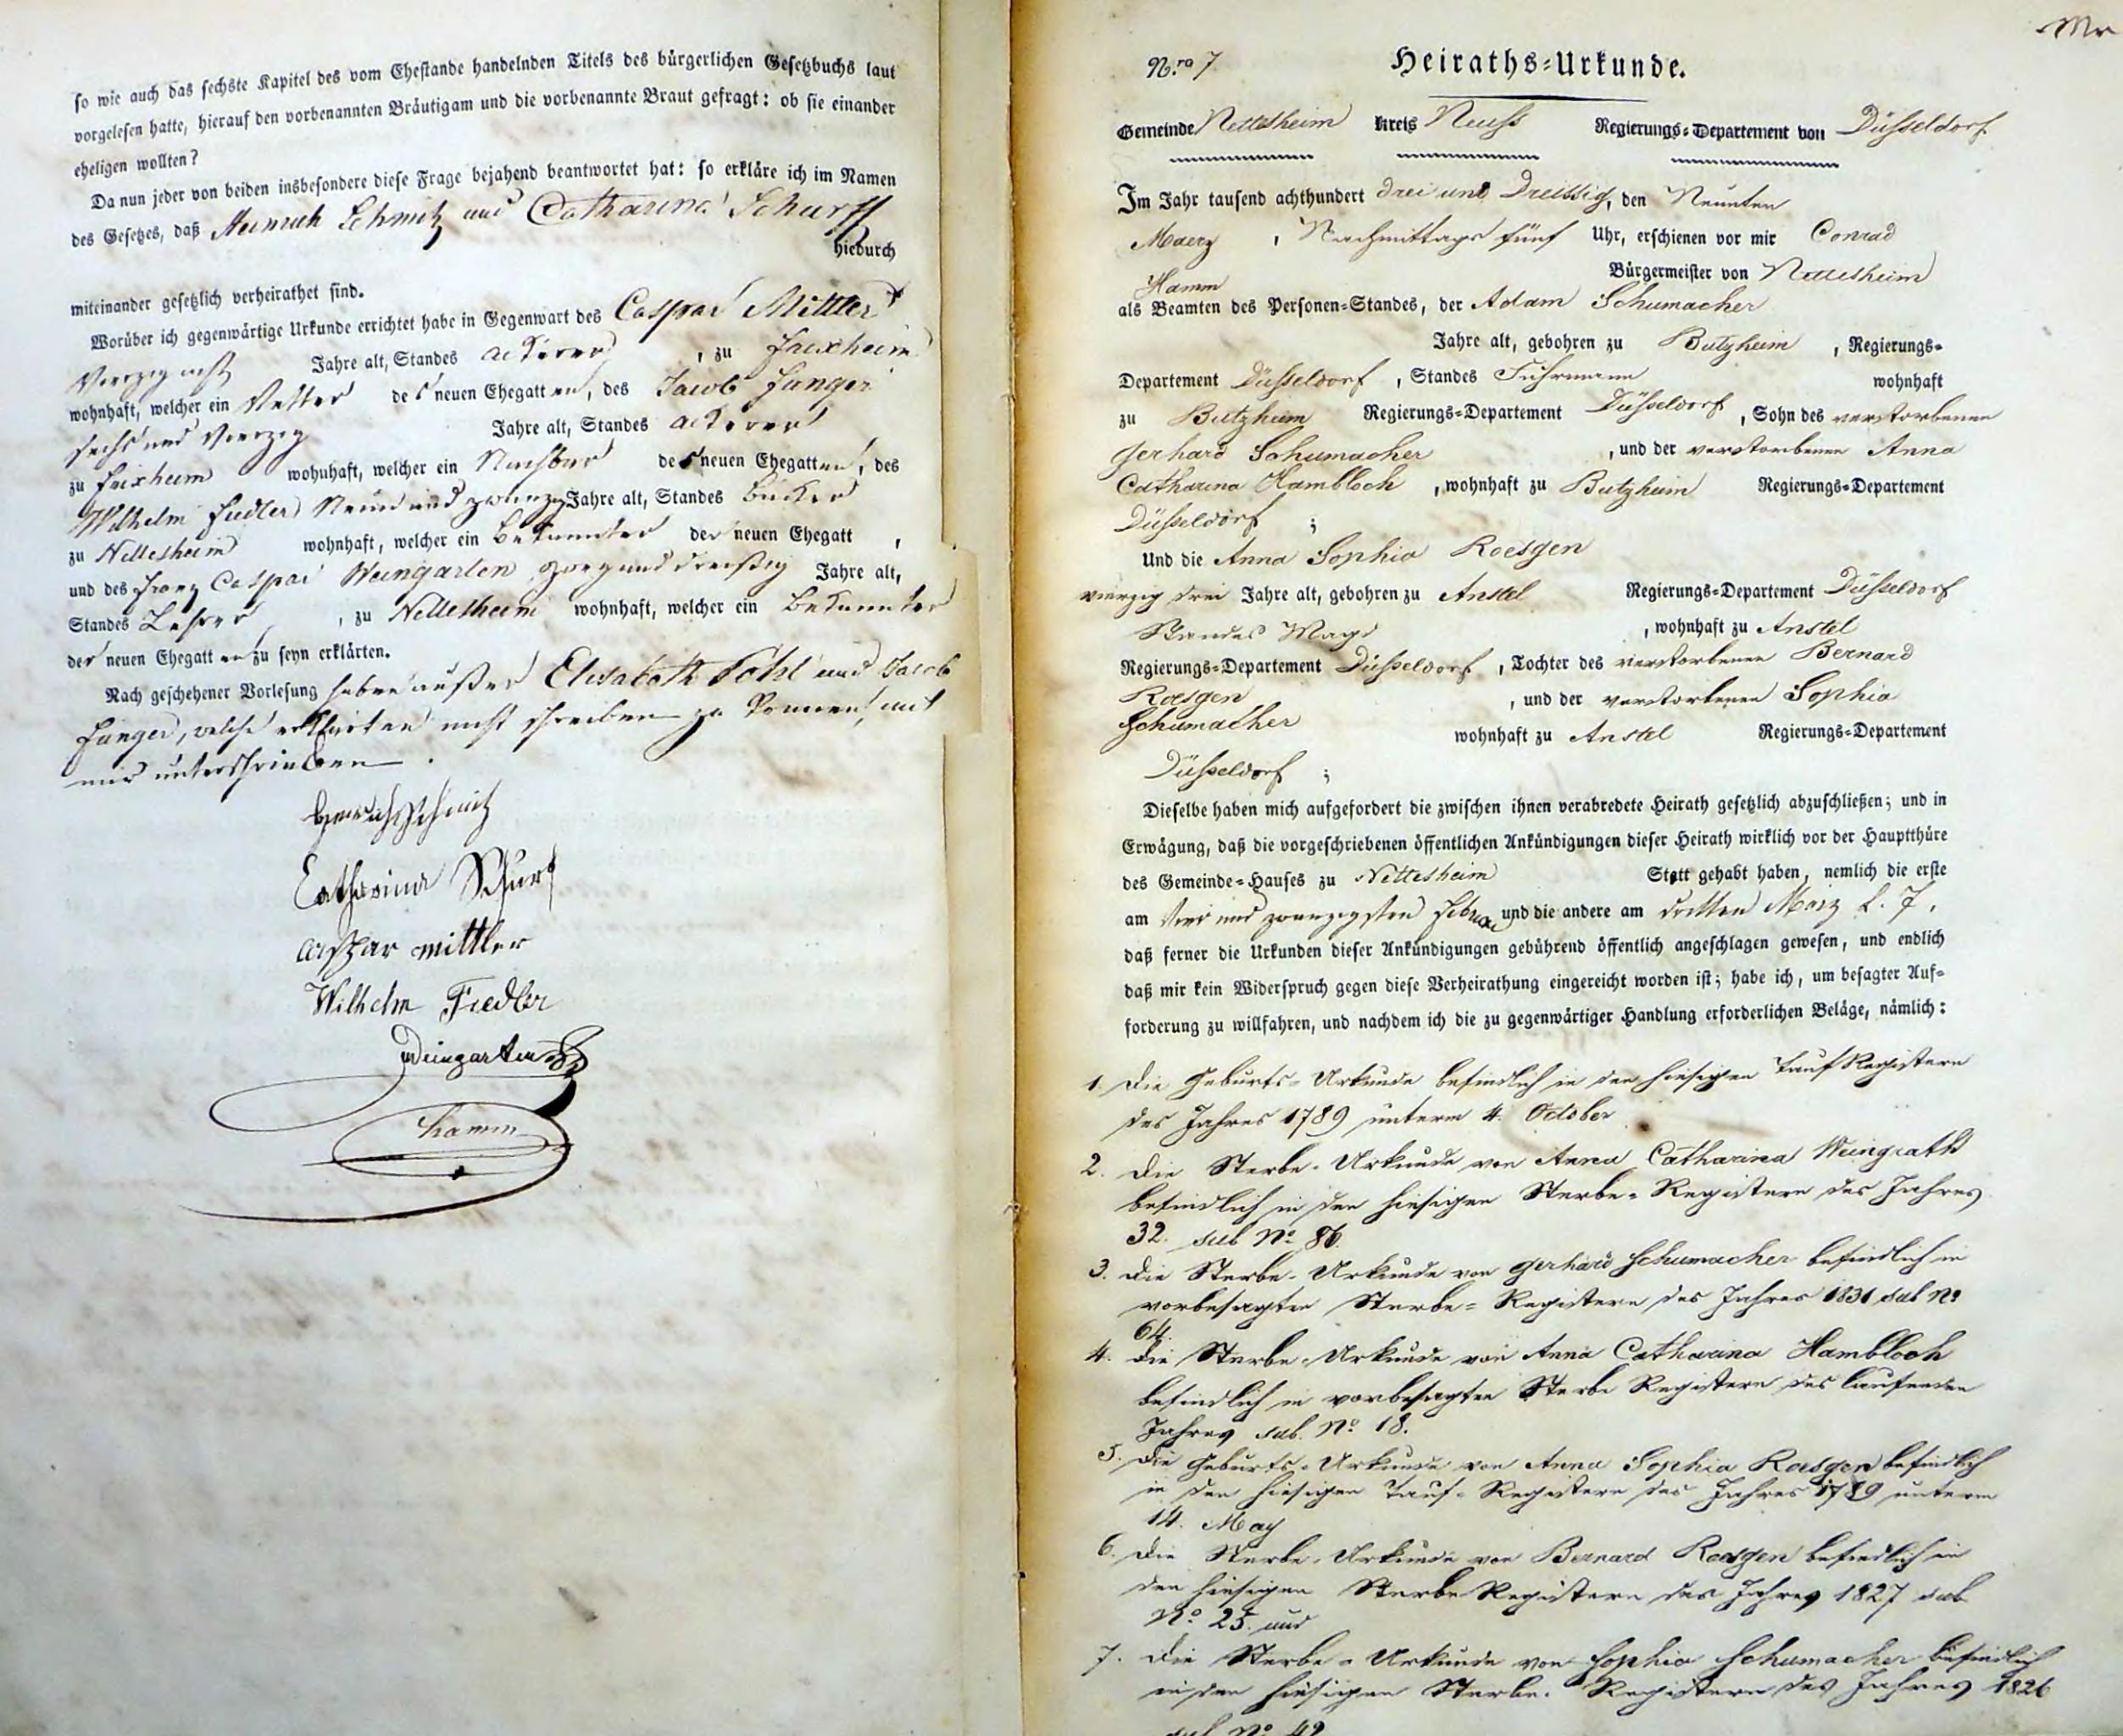 so wie auch das sechste Kapitel des vom Ehestande handelnden Titels des bürgerlichen Gesetzbuchs laut
vorgelesen hatte, hierauf den vorbenannten Bräutigam und die vorbenannte Braut gefragt: ob sie einander
eheligen wollten?
Da nun jeder von beiden insbesondere diese Frage bejahend beantwortet hat: so erkläre ich im Namen
des Gesetzes, daß Heinrich Schmitz und Catharina Schurff
hiedurch
miteinander gesetzlich verheirathet sind.
Worüber ich gegenwärtige Urkunde errichtet habe in Gegenwart des Caspar Mittler
Vierzig acht Jahre alt, Standes ackerer, zu Frixheim
wohnhaft, welcher ein Vetter des neuen Ehegatten, des Jacob Junger
sechs und Vierzig Jahre alt, Standes ackerer
zu Frixheim wohnhaft, welcher ein Nachbar des neuen Ehegatten, des
Wilhelm Fiedler Neun und zwanzig Jahre alt, Standes Bäcker
zu Nettesheim wohnhaft, welcher ein Bekannter der neuen Ehegatt ,
und des Franz Caspar Weingarten zwey und dreißig Jahre alt,
Standes Lehrer, zu Nettesheim wohnhaft, welcher ein Bekannter
der neuen Ehegatten zu seyn erklärten.
Nach geschehener Vorlesung haben außer Elisabeth Pohl und Jacob
Junger, welche erklärten nicht schreiben zu können, mit
mir unterschrieben.
Heinrich Schmitz
Catharina Schurf
Caspar mittler
Wilhelm Fiedler
Weingarten
Hamm
N.ro 7 Heiraths-Urkunde.
Gemeinde Nettesheim Kreis Neuss Regierungs-Departement von Düsseldorf
Im Jahr tausend achthundert drei und Dreissig, den Neunten
Maerz, Nachmittags fünf Uhr, erschienen vor mir Conrad
Hamm Bürgermeister von Nettesheim
als Beamten des Personen-Standes, der Adam Schumacher
Jahre alt, gebohren zu Butzheim, Regierungs-
Departement Düsseldorf, Standes Fuhrmann wohnhaft
zu Butzheim Regierungs-Departement Düsseldorf, Sohn des verstorbenen
Gerhard Schumacher, und der verstorbenen Anna
Catharina Hambloch, wohnhaft zu Butzheim Regierungs-Departement
Düsseldorf ;
Und die Anna Sophia Roesgen
vierzig drei Jahre alt, gebohren zu Anstel Regierungs-Departement Düsseldorf
Standes Magd, wohnhaft zu Anstel
Regierungs-Departement Düsseldorf, Tochter des verstorbenen Bernard
Roesgen, und der verstorbenen Sophia
Schumacher wohnhaft zu Anstel Regierungs-Departement
Düsseldorf ;
Dieselbe haben mich aufgefordert die zwischen ihnen verabredete Heirath gesetzlich abzuschließen; und in
Erwägung, daß die vorgeschriebenen öffentlichen Ankündigungen dieser Heirath wirklich vor der Hauptthüre
des Gemeinde-Hauses zu Nettesheim Statt gehabt haben, nemlich die erste
am vier und zwanzigsten Februar und die andere am dritten März l. J.
daß ferner die Urkunden dieser Ankündigungen gebührend öffentlich angeschlagen gewesen, und endlich
daß mir kein Widerspruch gegen diese Verheirathung eingereicht worden ist; habe ich, um besagter Auf-
forderung zu willfahren, und nachdem ich die zu gegenwärtiger Handlung erforderlichen Beläge, nämlich:
1. Die Geburts-Urkunde befindlich in den hiesigen Tauf Registern
des Jahres 1789 unterm 4. October
2. Die Sterbe-Urkunde von Anna Catharina Weingrath
befindlich in den hiesigen Sterbe-Registern des Jahres
32. sub No 86.
3. Die Sterbe-Urkunde von Gerhard Schumacher befindlich in
vorbesagten Sterbe-Registern des Jahres 1831 sub No
64.
4. Die Sterbe-Urkunde von Anna Catharina Hambloch
befindlich in vorbesagten Sterbe Registern des laufenden
Jahres sub. No 18.
5. Die Geburts-Urkunde von Anna Sophia Roesgen befindlich
in den hiesigen Tauf-Registern des Jahres 1789 unterm
14. May
6. Die Sterbe-Urkunde von Bernard Roesgen befindlich in
den hiesigen Sterbe Registern des Jahres 1827 sub
No 25. und
7. Die Sterbe-Urkunde von Sophia Schumacher befindlich
in den hiesigen Sterbe-Registern des Jahres 1826
sub No 49